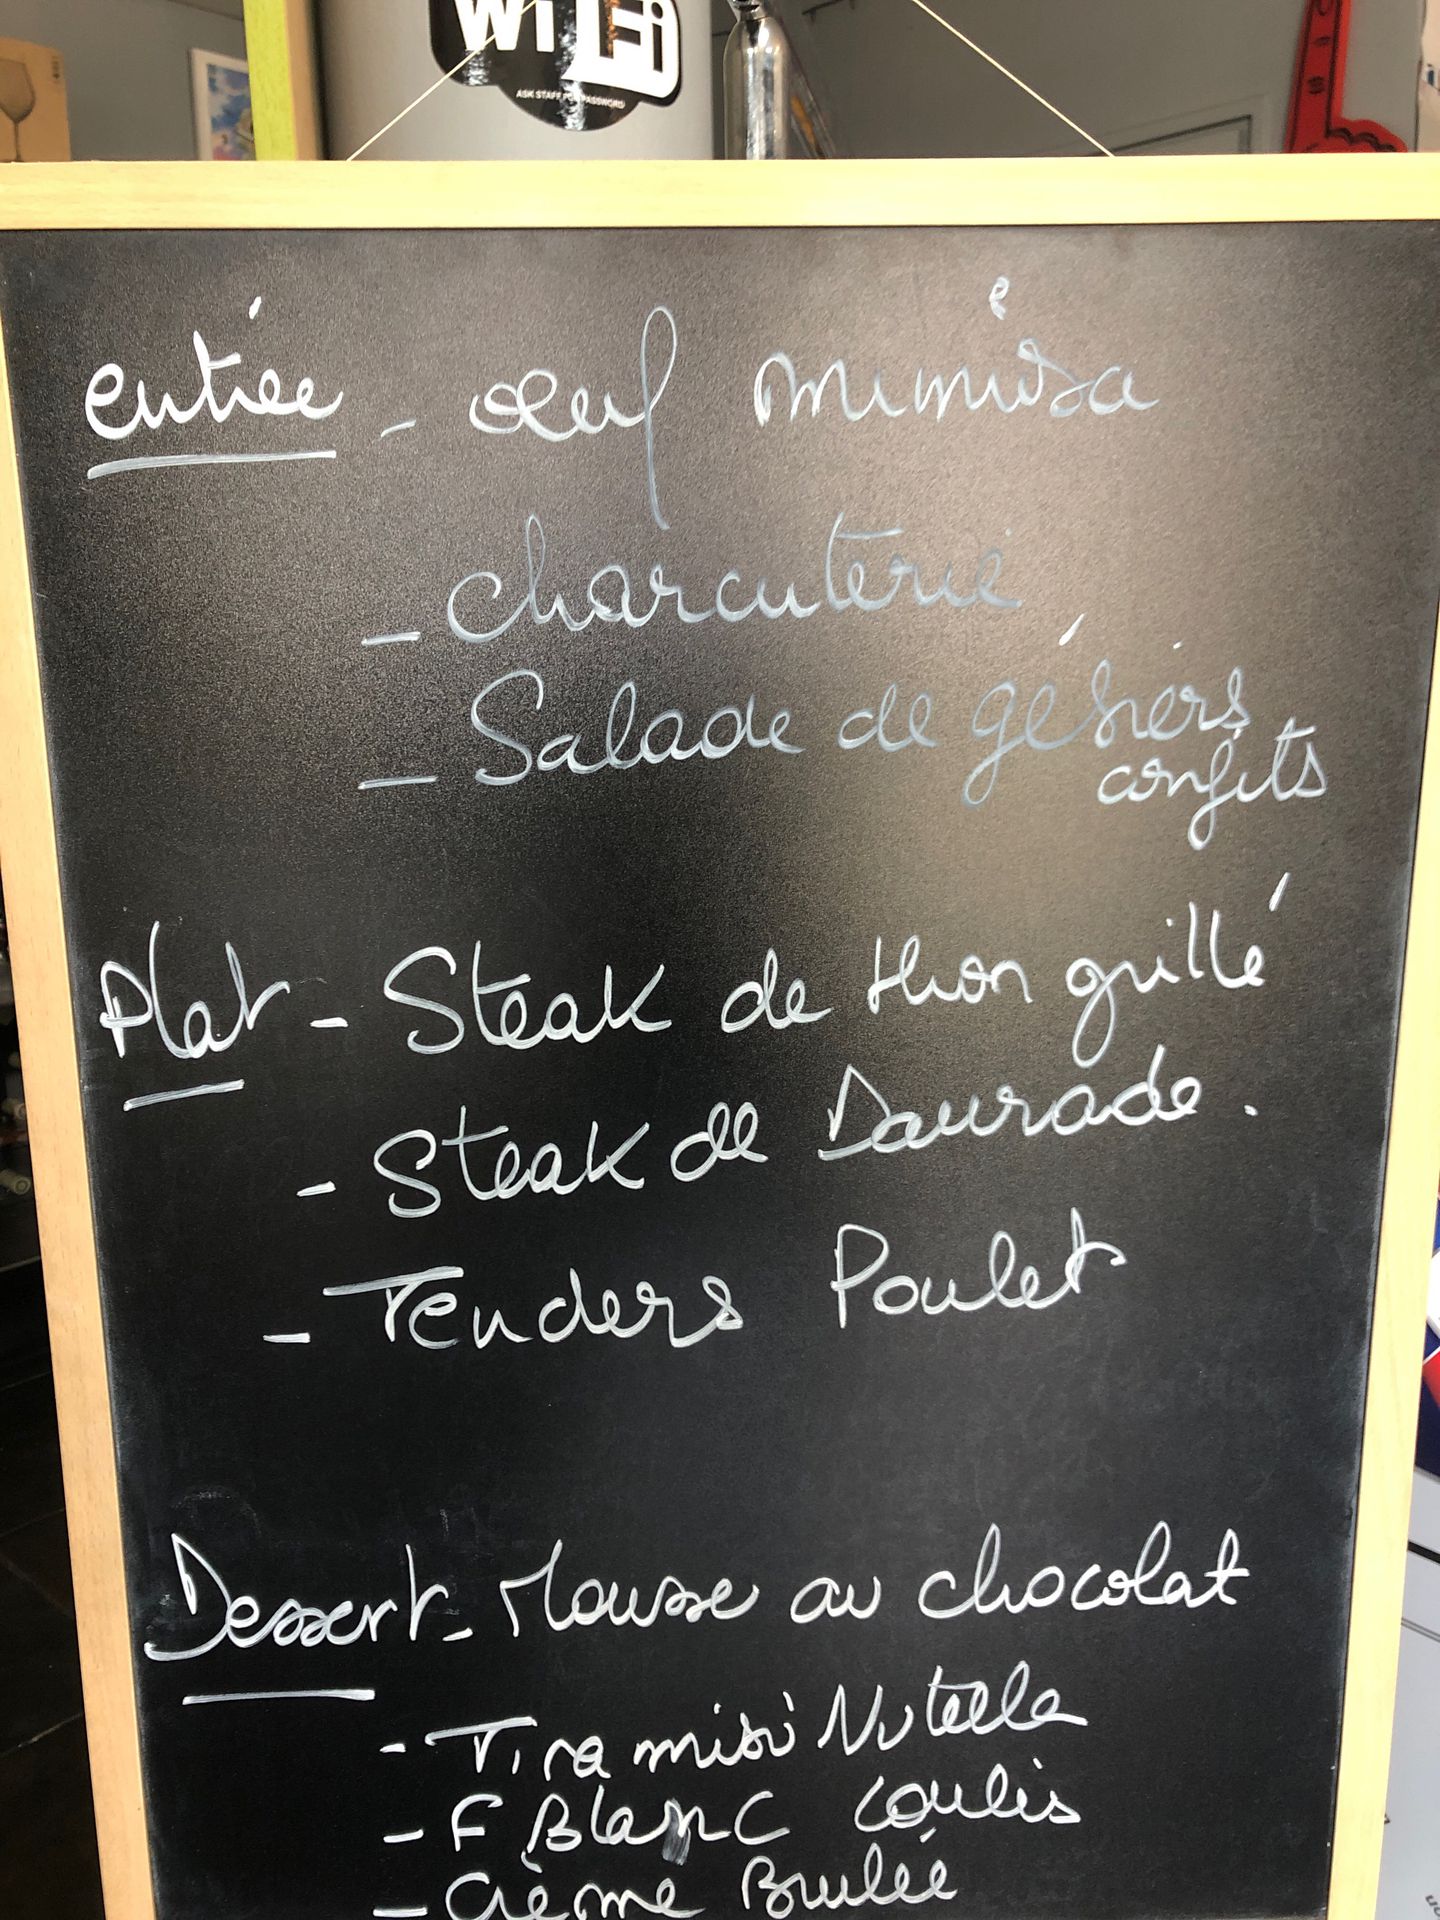 Wi Fi
ASK STAFF FOR PASSWORD
entrée - œuf mimosa
- charcuterie
- Salade de gésiers
confits
Plat - Steak de thon grillé
- Steak de Daurade.
- Tenders Poulet
Dessert - Mousse au chocolat
- Tiramisi Nutella
- F Blanc coulis
- Crème Brulée